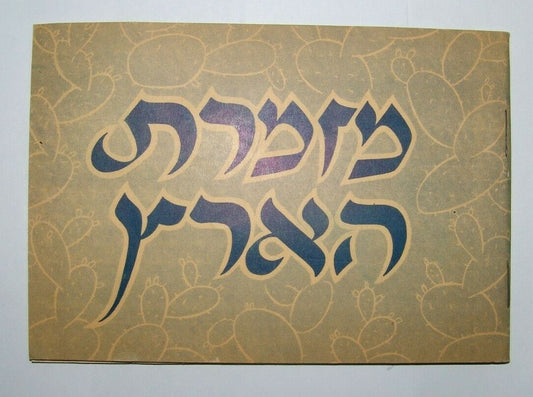 מזמרת
הארץ